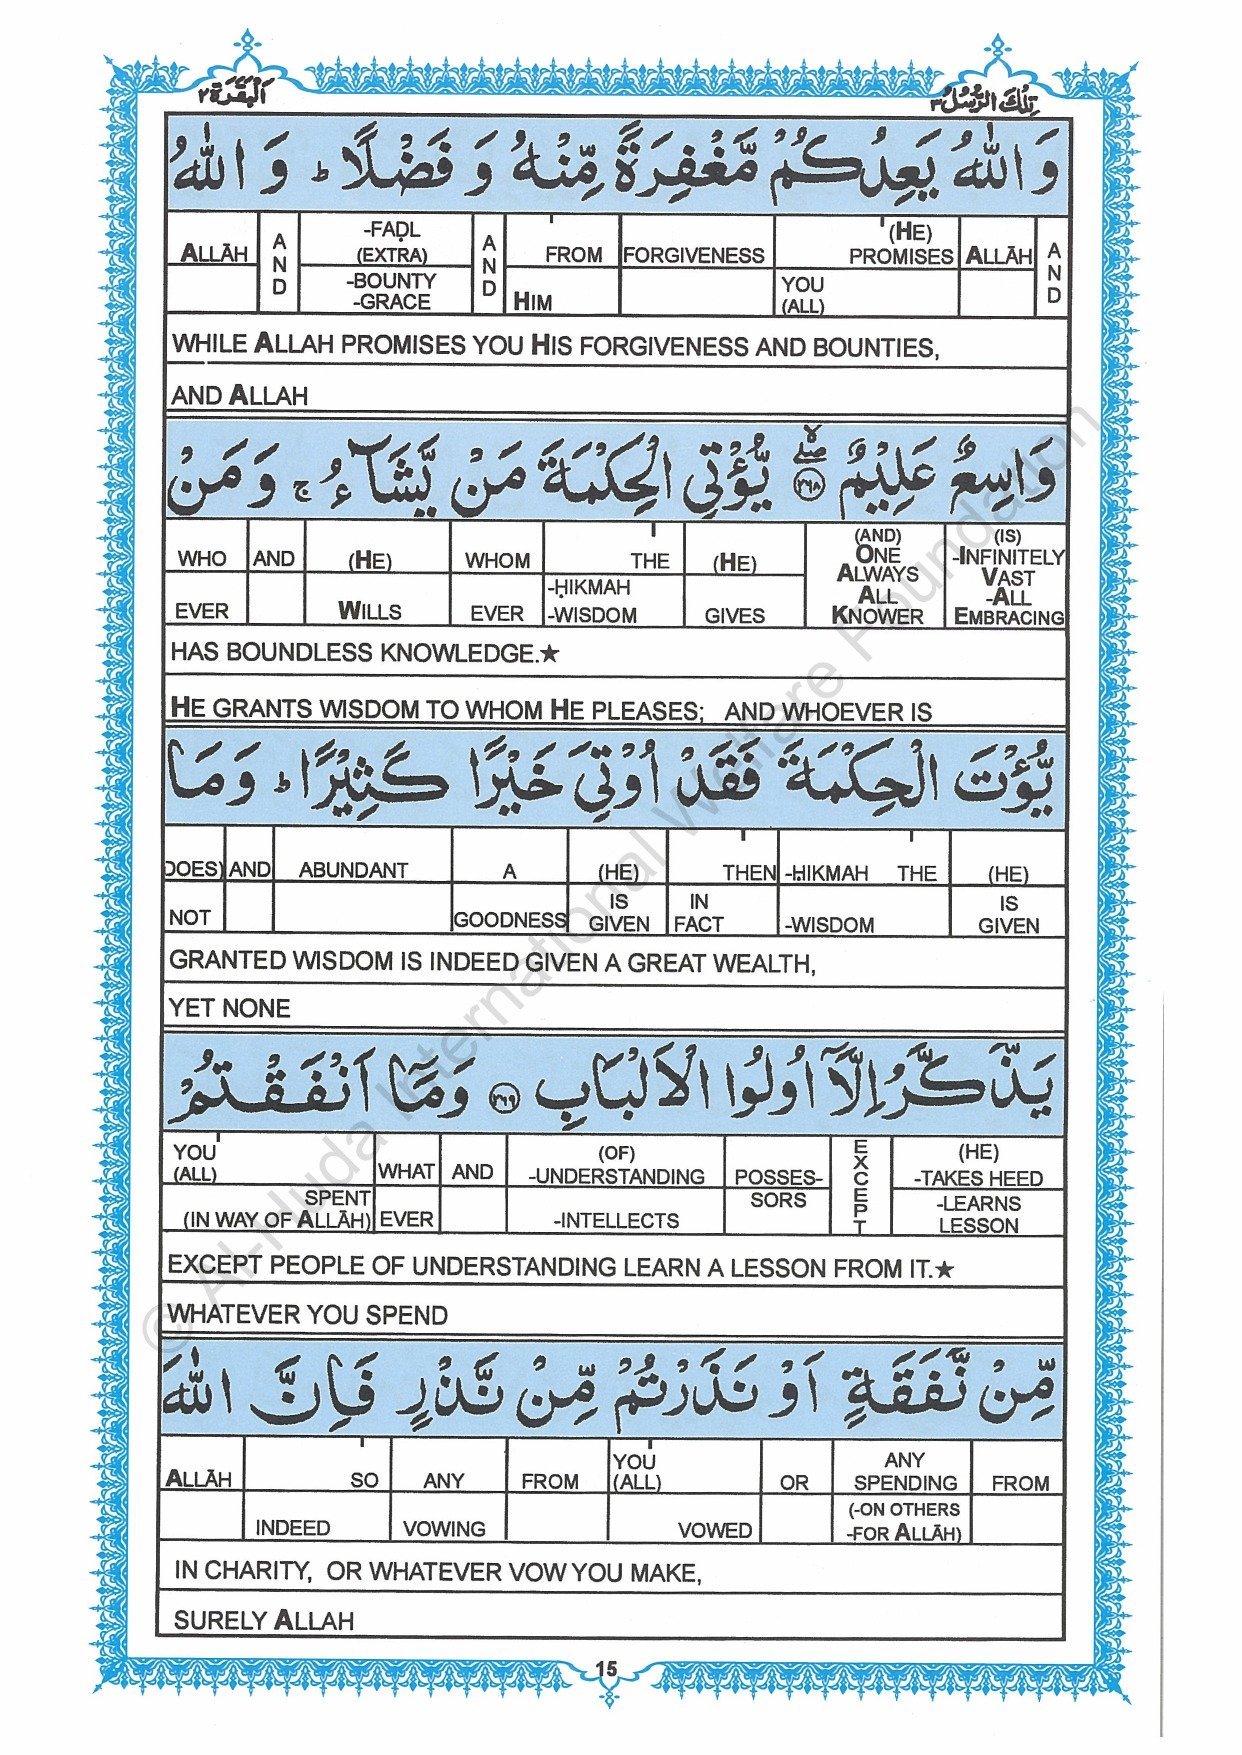 اَلْبَقَرَة ٢
تِلْكَ الرُّسُلُ ٣
وَ اللّٰهُ يَعِدُكُمْ مَّغْفِرَةً مِّنْهُ وَ فَضْلًا ؕ وَ اللّٰهُ
ALLĀH AND -FAḌL (EXTRA) AND FROM FORGIVENESS (HE) PROMISES ALLĀH AND
-BOUNTY -GRACE HIM YOU (ALL)
WHILE ALLAH PROMISES YOU HIS FORGIVENESS AND BOUNTIES,
AND ALLAH
وَاسِعٌ عَلِيْمٌ ۙۖ ﴿٢٦٨﴾ يُّؤْتِي الْحِكْمَةَ مَنْ يَّشَآءُ ۚ وَ مَنْ
WHO AND (HE) WHOM THE (HE) (AND) ONE ALWAYS ALL KNOWER (IS) -INFINITELY VAST -ALL EMBRACING
EVER WILLS EVER -ḤIKMAH -WISDOM GIVES
HAS BOUNDLESS KNOWLEDGE.★
HE GRANTS WISDOM TO WHOM HE PLEASES; AND WHOEVER IS
يُّؤْتَ الْحِكْمَةَ فَقَدْ اُوْتِيَ خَيْرًا كَثِيْرًا ؕ وَ مَا
DOES) AND ABUNDANT A (HE) THEN -ḤIKMAH THE (HE)
NOT GOODNESS IS GIVEN IN FACT -WISDOM IS GIVEN
GRANTED WISDOM IS INDEED GIVEN A GREAT WEALTH,
YET NONE
يَذَّكَّرُ اِلَّآ اُولُوا الْاَلْبَابِ ﴿٢٦٩﴾ وَ مَآ اَنْفَقْتُمْ
YOU (ALL) WHAT AND (OF) -UNDERSTANDING POSSES- EXCEPT (HE) -TAKES HEED
SPENT (IN WAY OF ALLĀH) EVER -INTELLECTS SORS -LEARNS LESSON
EXCEPT PEOPLE OF UNDERSTANDING LEARN A LESSON FROM IT.★
WHATEVER YOU SPEND
مِّنْ نَّفَقَةٍ اَوْ نَذَرْتُمْ مِّنْ نَّذْرٍ فَاِنَّ اللّٰهَ
ALLĀH SO ANY FROM YOU (ALL) OR ANY SPENDING FROM
INDEED VOWING VOWED (-ON OTHERS -FOR ALLĀH)
IN CHARITY, OR WHATEVER VOW YOU MAKE,
SURELY ALLAH
15
© Al-Huda International Welfare Foundation